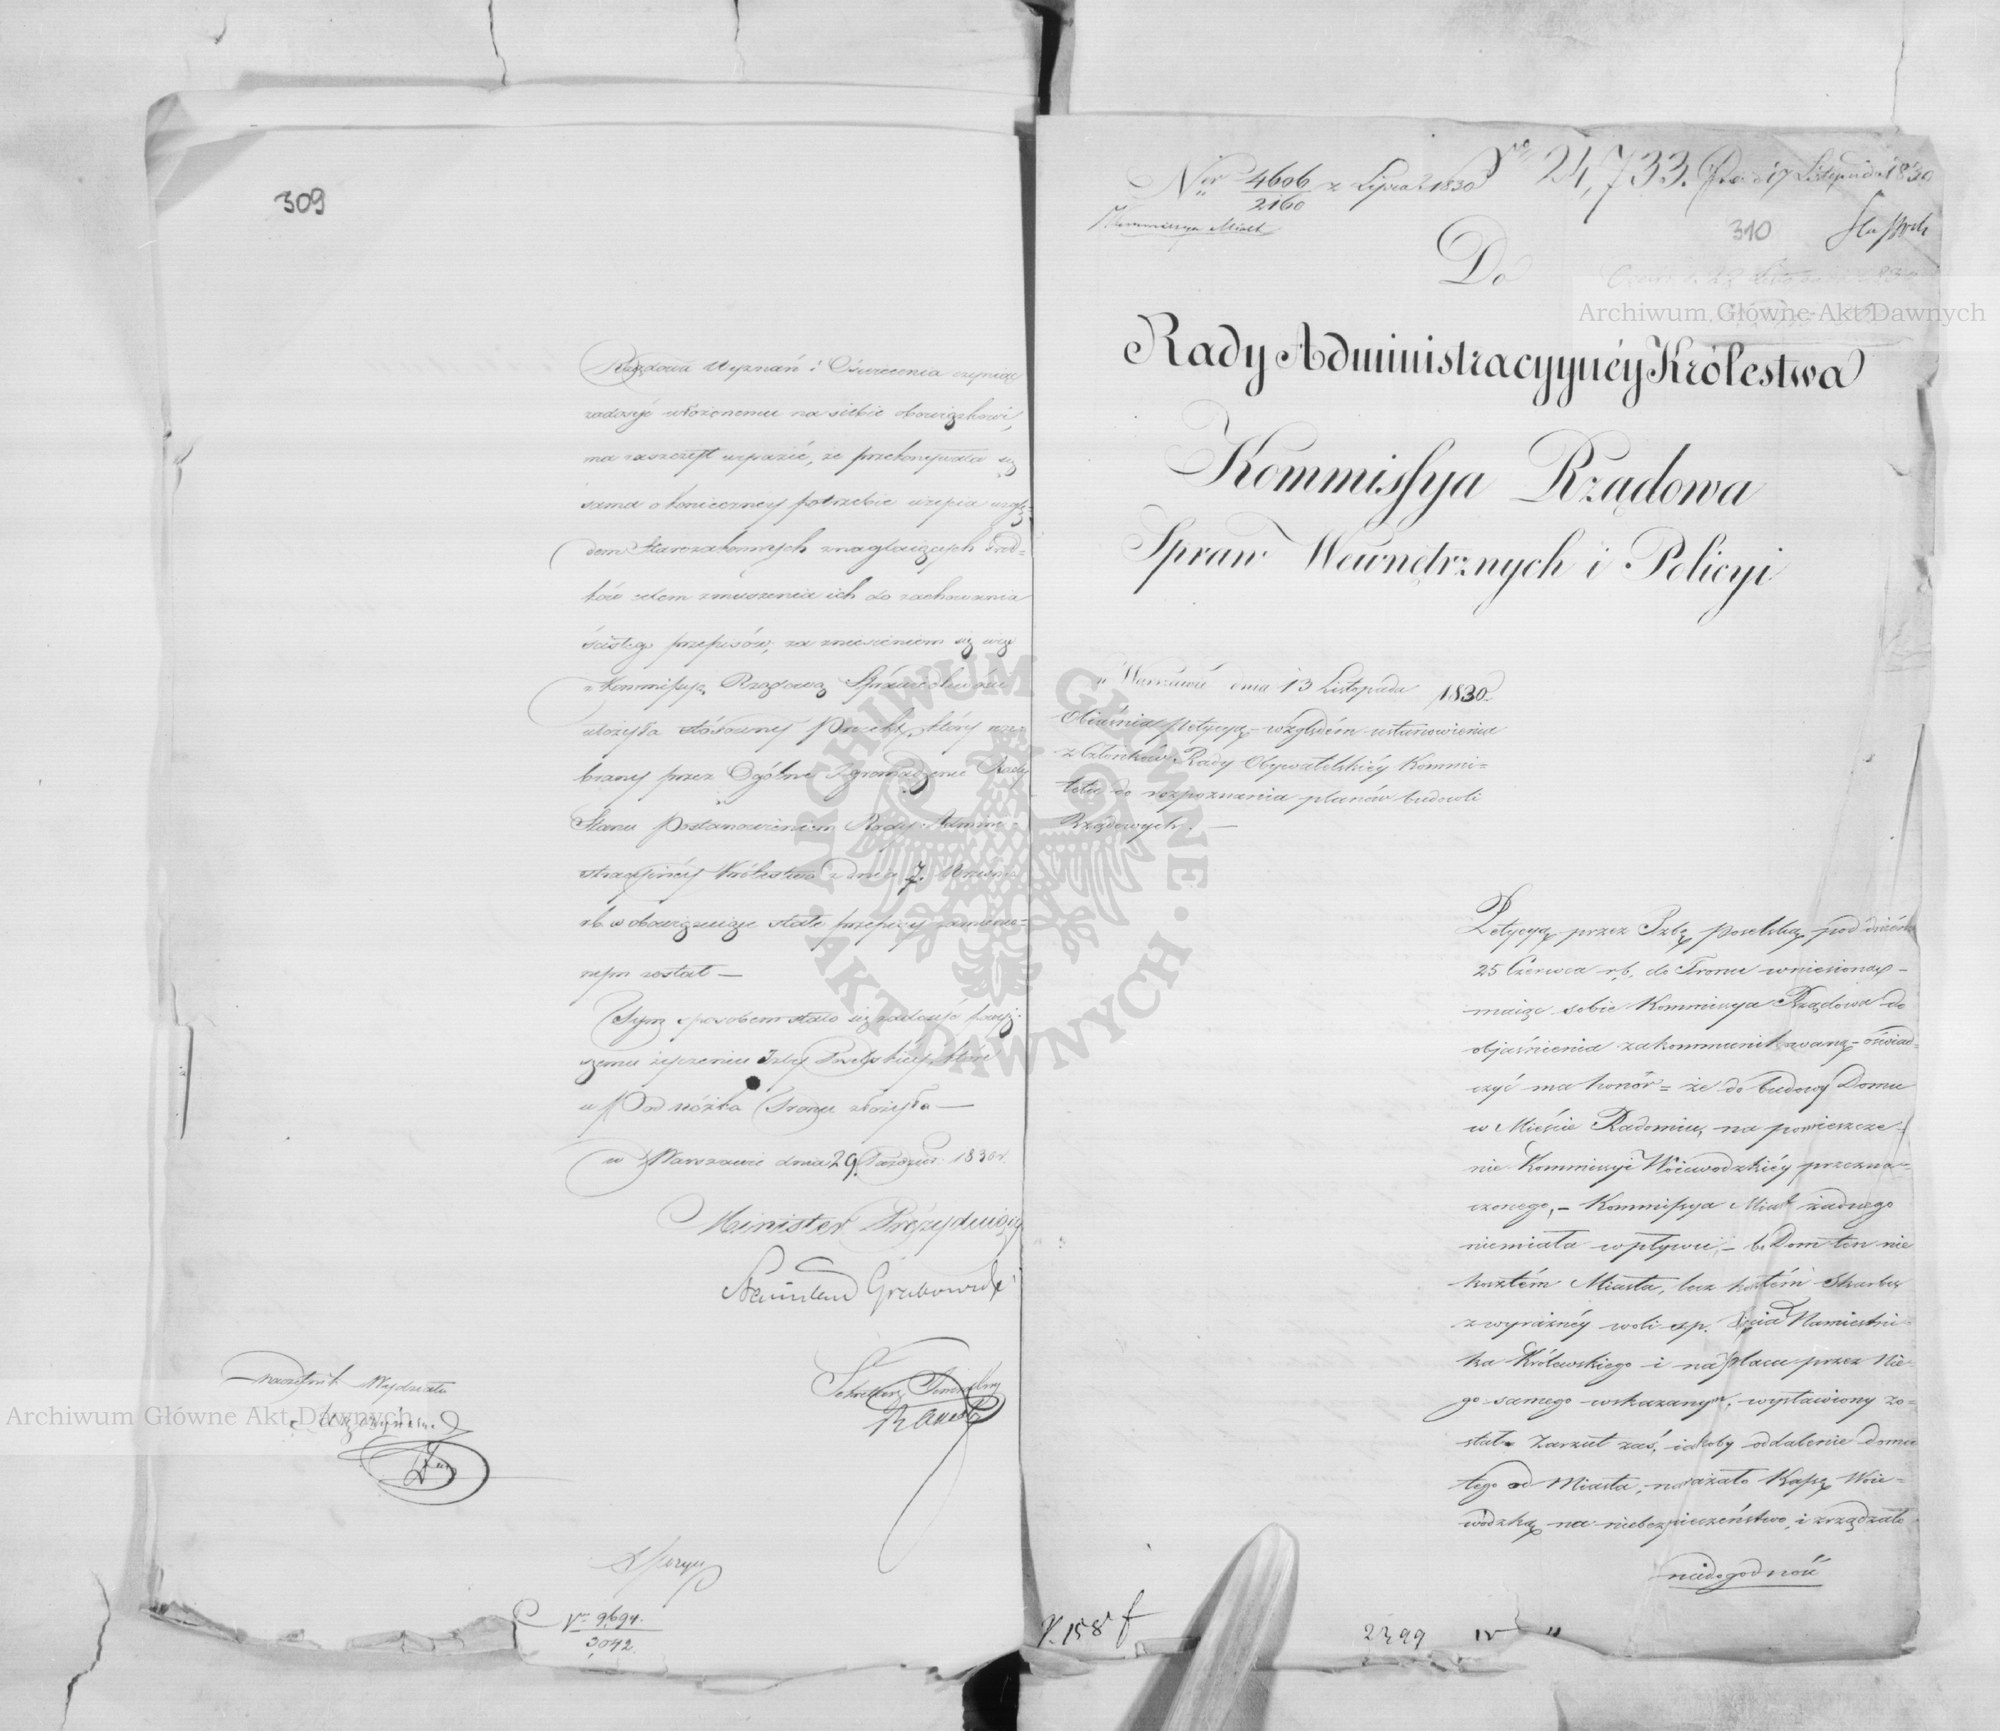 309
Rządowa Wyznań i Oświecenia czyniąc
zadosyć włożonemu na siebie obowiązkowi,
ma zaszczyt wyrazić, że przekonywała się
sama o koniecznej potrzebie użycia wzglę-
dem Starozakonnych znaglaiących środ-
ków celem zmuszenia ich do zachowania
ścisłego przepisów; za zniesieniem się więc
z Kommissyą Rządową Sprawiedliwości
ułożyła stósowny Proiekt, który
brany przez Ogólne Zgromadzenie Rady
Stanu Postanowieniem Rady Admini-
stracyjnéy Królestwa z dnia 7. Wrześn.
r.b. w obowiązuiące stałe przepisy zamienio-
nym został —
Tym sposobem stało się zadosyć
szemu życzeniu Izby Poselskiéy, które
u Podnóżka Tronu złożyła —
w Warszawie dnia 29. Paździer. 1830 r.
Minister Prezyduiący
Stanisław Grabowski
Sekretarz Jeneralny
Naczelnik Wydziału
9,694.
3,042.
Ner 4606 z Lipca 1830
2160
Kommissya Miast
No 24,733. 17 Listopada 1830
310
Do
Rady Administracyynéy Królestwa
Kommissya Rządowa
Spraw Wewnętrznych i Policyi
w Warszawie dnia 13 Listopada 1830.
Obiaśnia petycyą względem ustanowienia
z Członków Rady Obywatelskiéy Kommi-
tetu do rozpoznania planów budowli
Rządowych. —
Petycyą przez Izbę Poselską pod dniem
25 Czerwca r.b. do Tronu wniesioną —
maiąc sobie Kommissya Rządowa do
objaśnienia zakommunikowaną — oświad-
czyć ma honór = że do budowy Domu
w Mieście Radomiu, na pomieszcze-
nie Kommissyi Woiewodzkiéy przezna-
czonego, — Kommissya Miast żadnego
niemiała wpływu, — bo Dom ten nie
kosztém Miasta, lecz kosztém Skarbu,
z wyraźnéy woli ś.p. Xięcia Namiestni-
ka Królewskiego i na placu przez Nie-
go samego wskazanym, wystawiony zo-
stał. Zarzut zaś, iakoby oddalenie domu
tego od Miasta, narażało Kassę Woie-
wódzką na niebezpieczeństwo, i zrządzało
niedogodność
158
2399
Archiwum Główne Akt Dawnych
Archiwum Główne Akt Dawnych
ARCHIWUM GŁÓWNE
AKT DAWNYCH